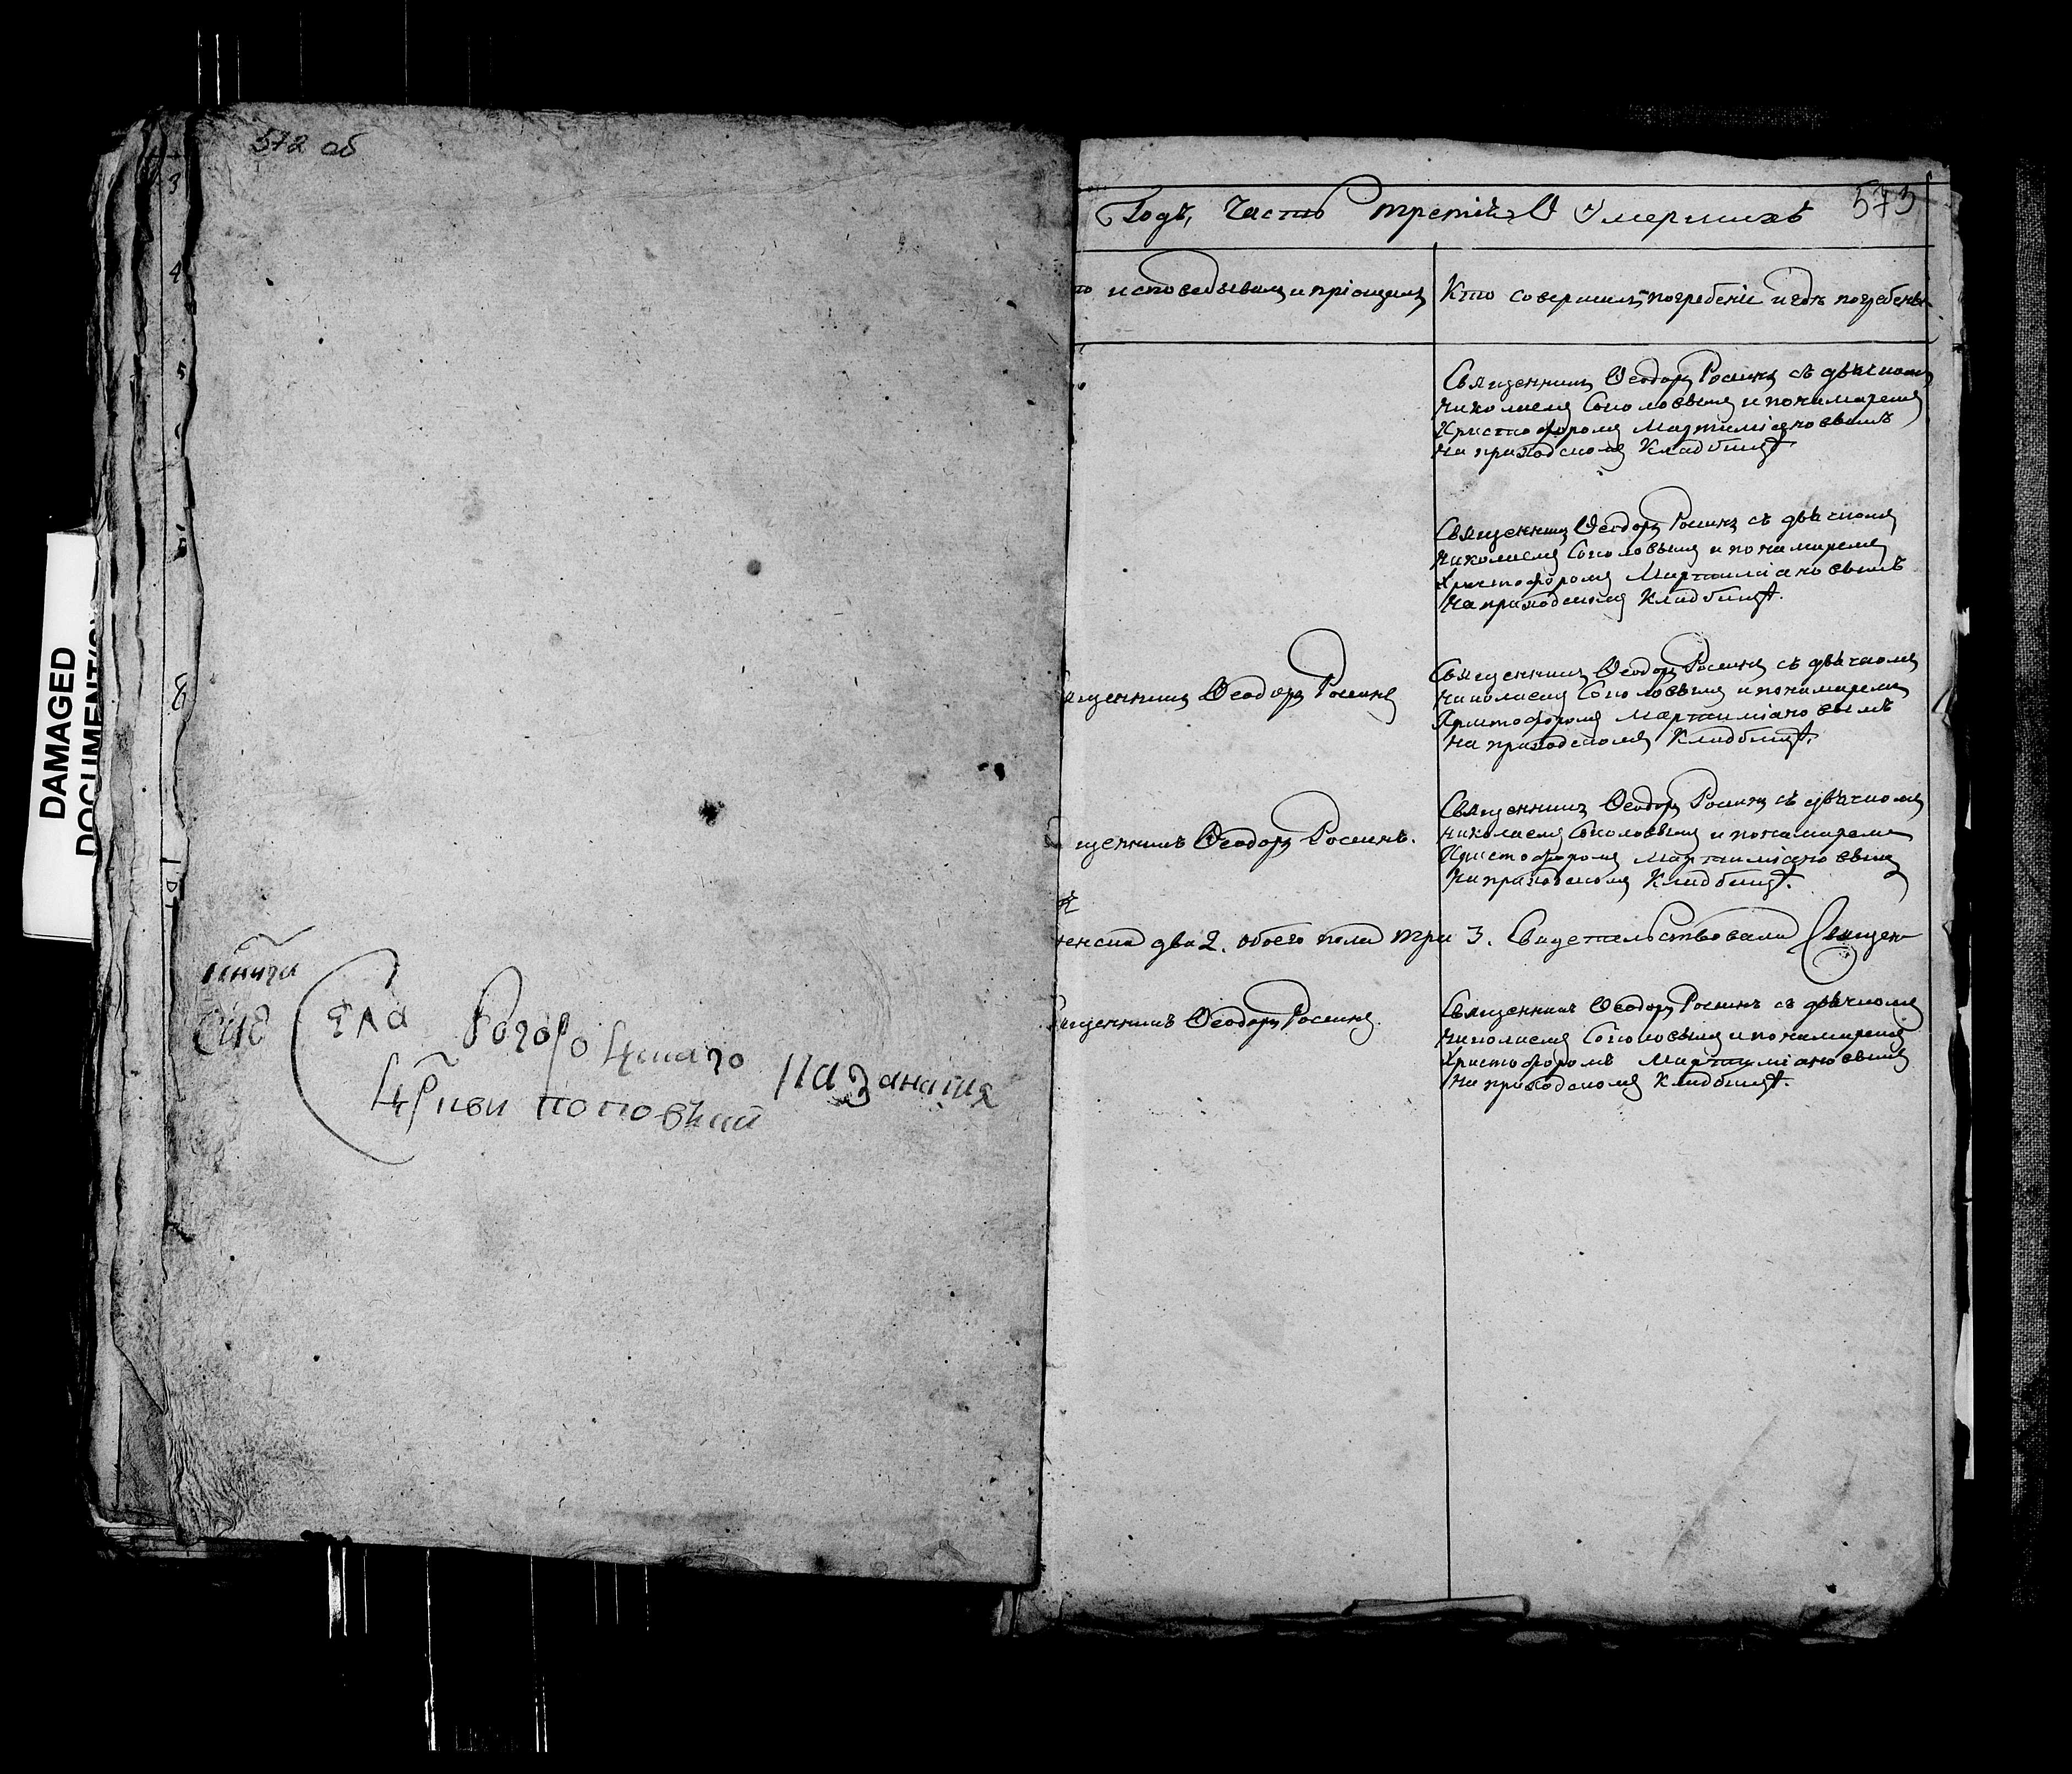 572 об
3
4
5
DAMAGED
DOCUMENT(S)
книга
Сия
села Рого
Цркви поповкий
573
Годъ, Часть третія О Умершихъ
то исповедывалъ и пріощалъ
Кто совершалъ погребеніе и гдѣ погребены
Священникъ Ѳеодоръ Росинъ съ дьячкомъ
Николаемъ Соколовымъ и пономаремъ
Христофоромъ Мартиміановымъ
На приходскомъ Кладбищѣ.
Священникъ Ѳеодоръ Росинъ съ дьячкомъ
Николаемъ Соколовымъ и пономаремъ
Христофоромъ Мартиміановымъ
На приходскомъ Кладбищѣ.
ященникъ Ѳеодоръ Росинъ
Священникъ Ѳеодоръ Росинъ съ дьячкомъ
Николаемъ Соколовымъ и пономаремъ
Христофоромъ Мартиміановымъ
На приходскомъ Кладбищѣ.
щенникъ Ѳеодоръ Росинъ.
Священникъ Ѳеодоръ Росинъ съ дьячкомъ
Николаемъ Соколовымъ и пономаремъ
Христофоромъ Мартиміановымъ
На приходскомъ Кладбищѣ.
женска два 2. обоего пола три 3. Свидетельствовали Священ
ященникъ Ѳеодоръ Росинъ.
Священникъ Ѳеодоръ Росинъ съ дьячкомъ
Николаемъ Соколовымъ и пономаремъ
Христофоромъ Мартиміановымъ
На приходскомъ Кладбищѣ.